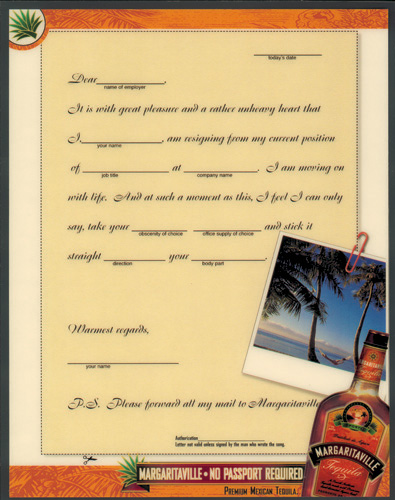 today's date
Dear ____________,
name of employer
It is with great pleasure and a rather unheavy heart that
I,____________, am resigning from my current position
your name
of ____________ at ____________. I am moving on
job title company name
with life. And at such a moment as this, I feel I can only
say, take your ____________ ____________ and stick it
obscenity of choice office supply of choice
straight ____________ your ____________.
direction body part
Warmest regards,
your name
P.S. Please forward all my mail to Margaritaville
Authorization____________
Letter not valid unless signed by the man who wrote the song.
MARGARITAVILLE
Tequila
MARGARITAVILLE • NO PASSPORT REQUIRED
PREMIUM MEXICAN TEQUILA.